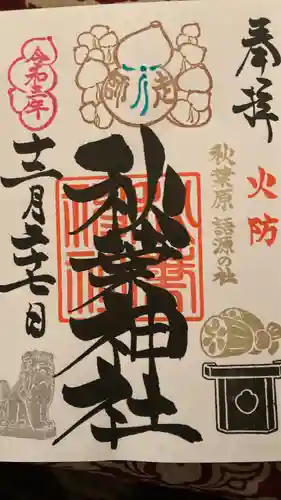 奉拝
火防
秋葉原・語源の社
師走
秋葉神社
令和三年
十二月二十七日